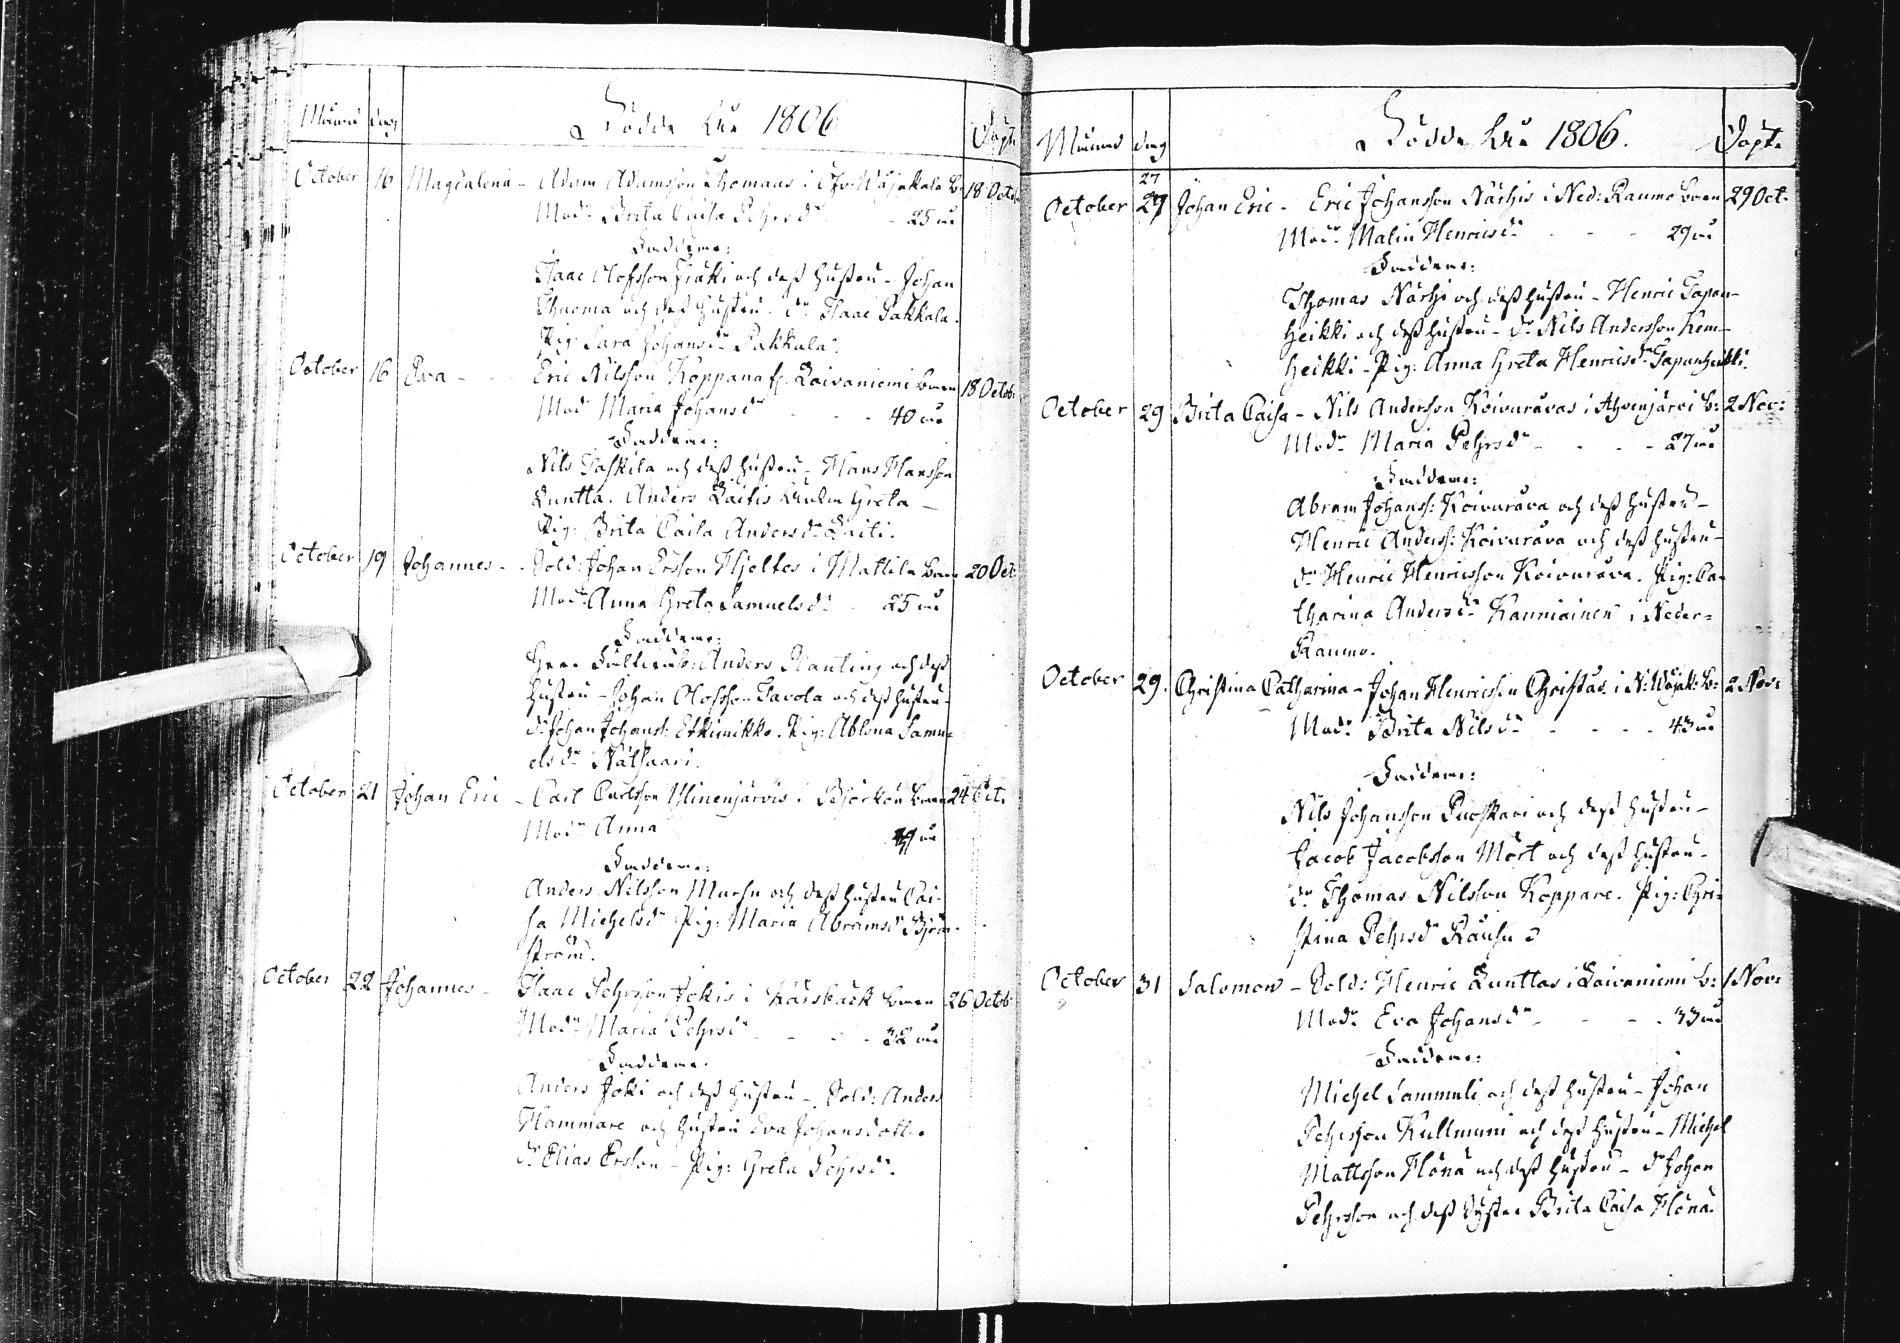 Månad dag Födde åhr 1806 Döpte
October 16 Magdalena - Adam Adamsson Thomaas i Öfv: Wäjakala b. 18 Octo:
Modr Brita Caisa Pehrsdr - 25 åhr
Faddrar:
Isaac Olofsson och dess hustru - Johan
och dess hustru - dr Isaac Pakkala.
Pig: Sara Johansdr Pakkala.
October 16 Eva - Eric Nilsson Koppana fr. Laivaniemi barn 18 Octob:
Modr Maria Johansdr - - 40 åhr
Faddrar:
Nils Taskila och dess hustru - Hans Hansson
Luntta. Anders Laitis Greta -
Pig: Brita Caisa Andersdr Laiti.
October 19 Johannes - Sold: Johan Ersson Hjeltes i Mattila barn 20 Oct:
Modr Anna Greta Samuelsdr - 25 åhr
Faddrar:
Herr Anders Planting och dess
hustru - Johan Olofsson Tavola och dess hustru -
dr Johan Johanss: Etkimikko. Pig: Ablona Samu=
elsdr Nätsaari.
October 21 Johan Eric - Carl Carlsson Ylinenjärvis i Björckön barn 24 Oct:
Modr Anna åhr
Faddrar:
Anders Nilsson Marsu och dess hustru Cai-
sa Michelsdr Pig: Maria Abramsdr Björn-
ström.
October 22 Johannes - Isaac Pehrsson Jokis i Kärsbäck barn 26 Octob:
Modr Maria Pehrsdr - - - 32 åhr
Faddrar:
Anders Joki och dess hustru - Sold: Anders
Hammare och hustru Eva Johansdotter
dr Elias Ersson - Pig: Greta Pehrsdr.
Månad dag Födde åhr 1806. Döpte
27
October 27 Johan Eric - Eric Johansson Närhis i Ned: Raumo barn 29 Oct:
Modr Malin Henricsdr - - - 29 åhr
Faddrar:
Thomas Närhi och dess hustru - Henric Tapan-
heikki och dess hustru - dr Nils Andersson Kem-
heikki - Pig: Anna Greta Henricsdr Tapanheikki.
October 29 Brita Caisa - Nils Andersson Koivuravas i Alpenjärvi b: 2 Nov:
Modr Maria Pehrsdr - - - 27 åhr
Faddrar:
Abram Johanss: Koivurava och dess hustru -
Henric Anderss: Koivurava och dess hustru -
dr Henric Henricsson Koivurava. Pig: Ca-
tharina Andersdr Kauniainen i Neder=
Raumo.
October 29. Christina Catharina - Johan Henricsson Christas i N: Wäjak: b: 2 Nov:
Modr Brita Nilsdr - - - - 43 åhr
Faddrar:
Nils Johansson Puoskari och dess hustru -
Jacob Jacobsson Mört och dess hustru -
dr Thomas Nilsson Koppare. Pig: Chri-
stina Pehrsdr
October 31 Salomon - Sold: Henric Lunttas i Laivaniemi b: 1 Nov:
Modr Eva Johansdr - - - 33 åhr
Faddrar:
Michel Sammeli och dess hustru - Johan
Pehrsson Kullmuni och dess hustru - Michel
Mattsson Hönä och dess hustru - dr Johan
Pehrsson och dess Syster Brita Caisa Hönä.